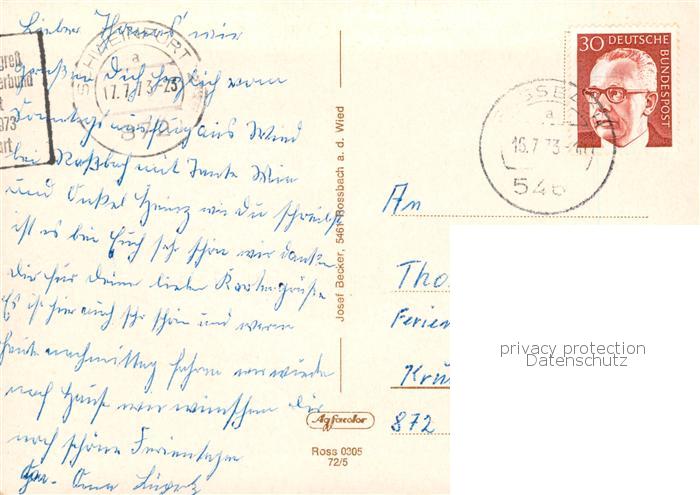 Lieber Thomas wir
grüßen Dich herzlich vom
Sonntagsausflug aus Wied
bei Roßbach mit Tante Mia
und Onkel Heinz wie Du schreibst
ist es bei Euch sehr schön wir danken
Dir für Deine lieben Kartengrüße
Es ist hier auch sehr schön und warm
heute nachmittag fahren wir wieder
nach Haus wir wünschen Dir
noch schöne Ferientage
Oma
greß
erbund
t
973
art
SCHWEINFURT
a
17.7.73-23
872
Josef Becker, 5461 Rossbach a. d. Wied
Agfacolor
Ross 0305
72/5
30 DEUTSCHE
BUNDESPOST
a
16.7.73
546
An
Tho
Ferien
Krü
872
privacy protection
Datenschutz